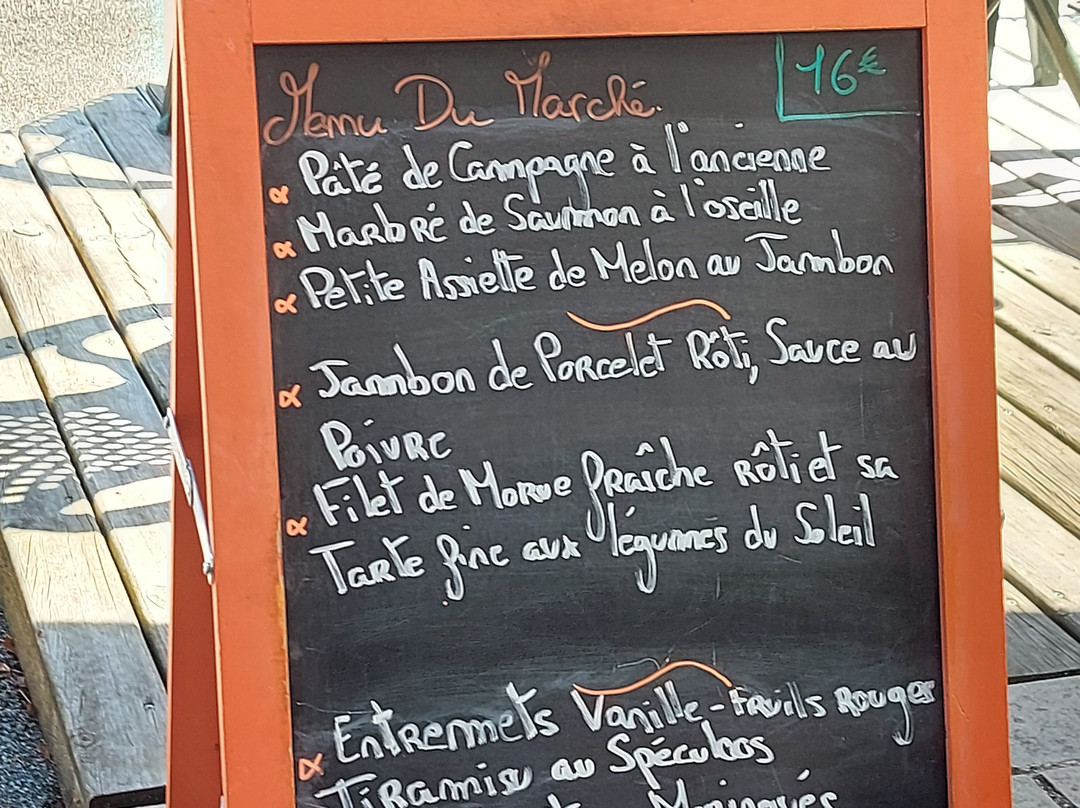 Menu Du Marché.
16€
Pâté de Campagne à l'ancienne
Marbré de Saumon à l'oseille
Petite Assiette de Melon au Jambon
Jambon de Porcelet Rôti, Sauce au
Poivre
Filet de Morue fraîche rôti et sa
Tarte fine aux légumes du Soleil
Entremets Vanille-fruits Rouges
Tiramisu au Spéculoos